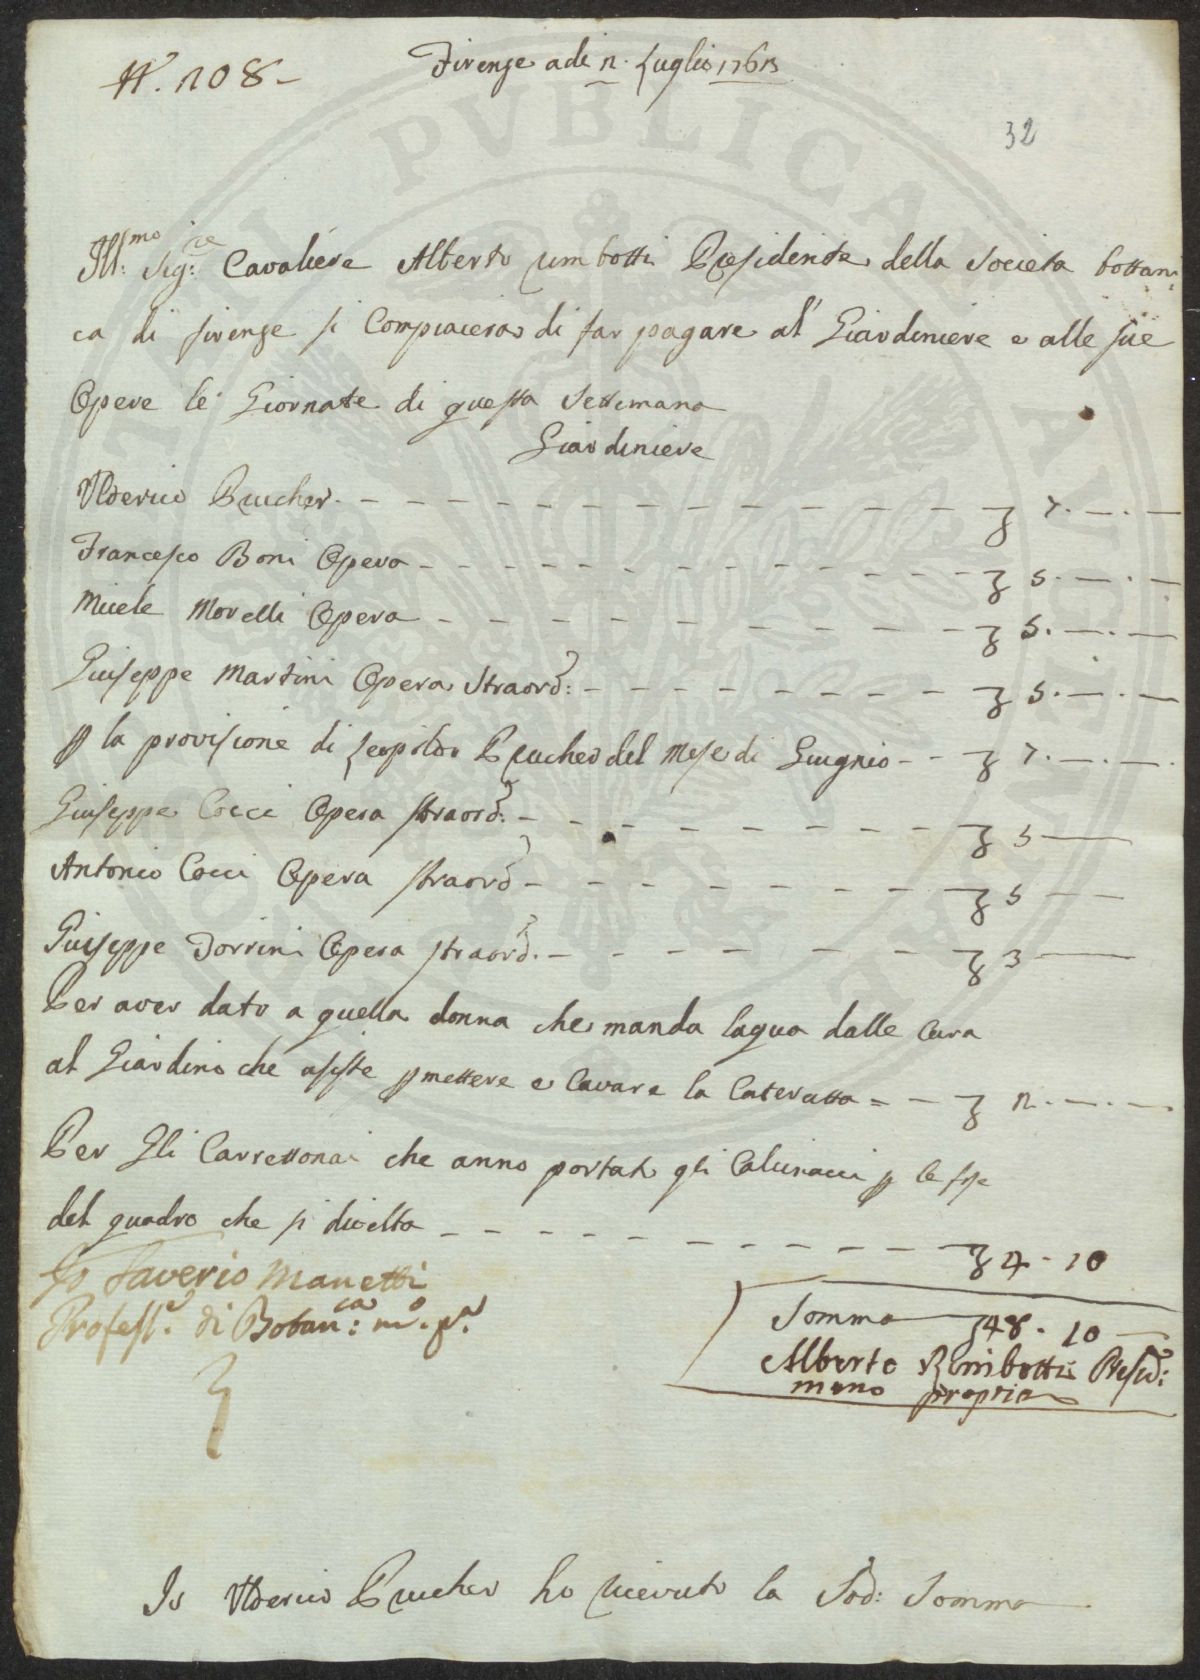 N. 108 -
Firenze adi 2. Luglio 1763
32
Ill:mo Sig:re Cavaliere Alberto Rimbotti Presidente della Societa bottani
ca di firenze si Compiacera di far pagare al' Giardiniere e alle sue
Opere le Giornate di questa Settimana
Giardiniere
Ulderico Prucher - - - £ 7. —. —
Francesco Boni Opera - - - £ 5. —. —
Miele Morelli Opera - - - £ 5. —. —
Giuseppe Martini Opera Straord: - - - £ 5. —. —
p la provisione di Leopoldo Prucher del Mese di Giugnio - - £ 7. —. —
Giuseppe Cocci Opera straord: - - - £ 5 —
Antonio Cocci Opera straord - - - £ 5 —
Giuseppe Dorrini Opera straord. - - - £ 3 —
Per aver dato a quella donna che manda laqua dalle Cura
al Giardino che asiste p mettere e Cavare la Cateratta = - £ 2. —. —
Per Gli Carrettonai che anno portati gli Calcinacci p le fosse
del quadro che si divelta - - - £ 4 - 10
Somma £ 48 - 10 —
Io Saverio Manetti
Profess.e di Botan:ca m.o p.a
Alberto Rimbotti Presid:
mano propria
Io Ulderico Prucher ho ricevuto la Sod: Somma
PVBLICAE